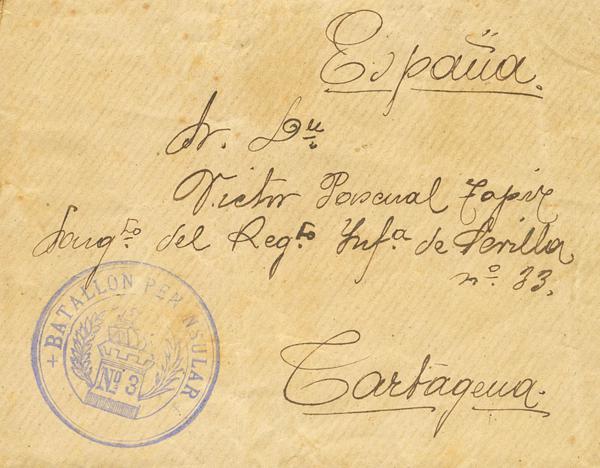 España.
Sr. Dn
Victor Pascual Tapiz
Sargto del Regto Infa de Sevilla
no. 33.
Cartagena.
+ BATALLON PENINSULAR
No 3